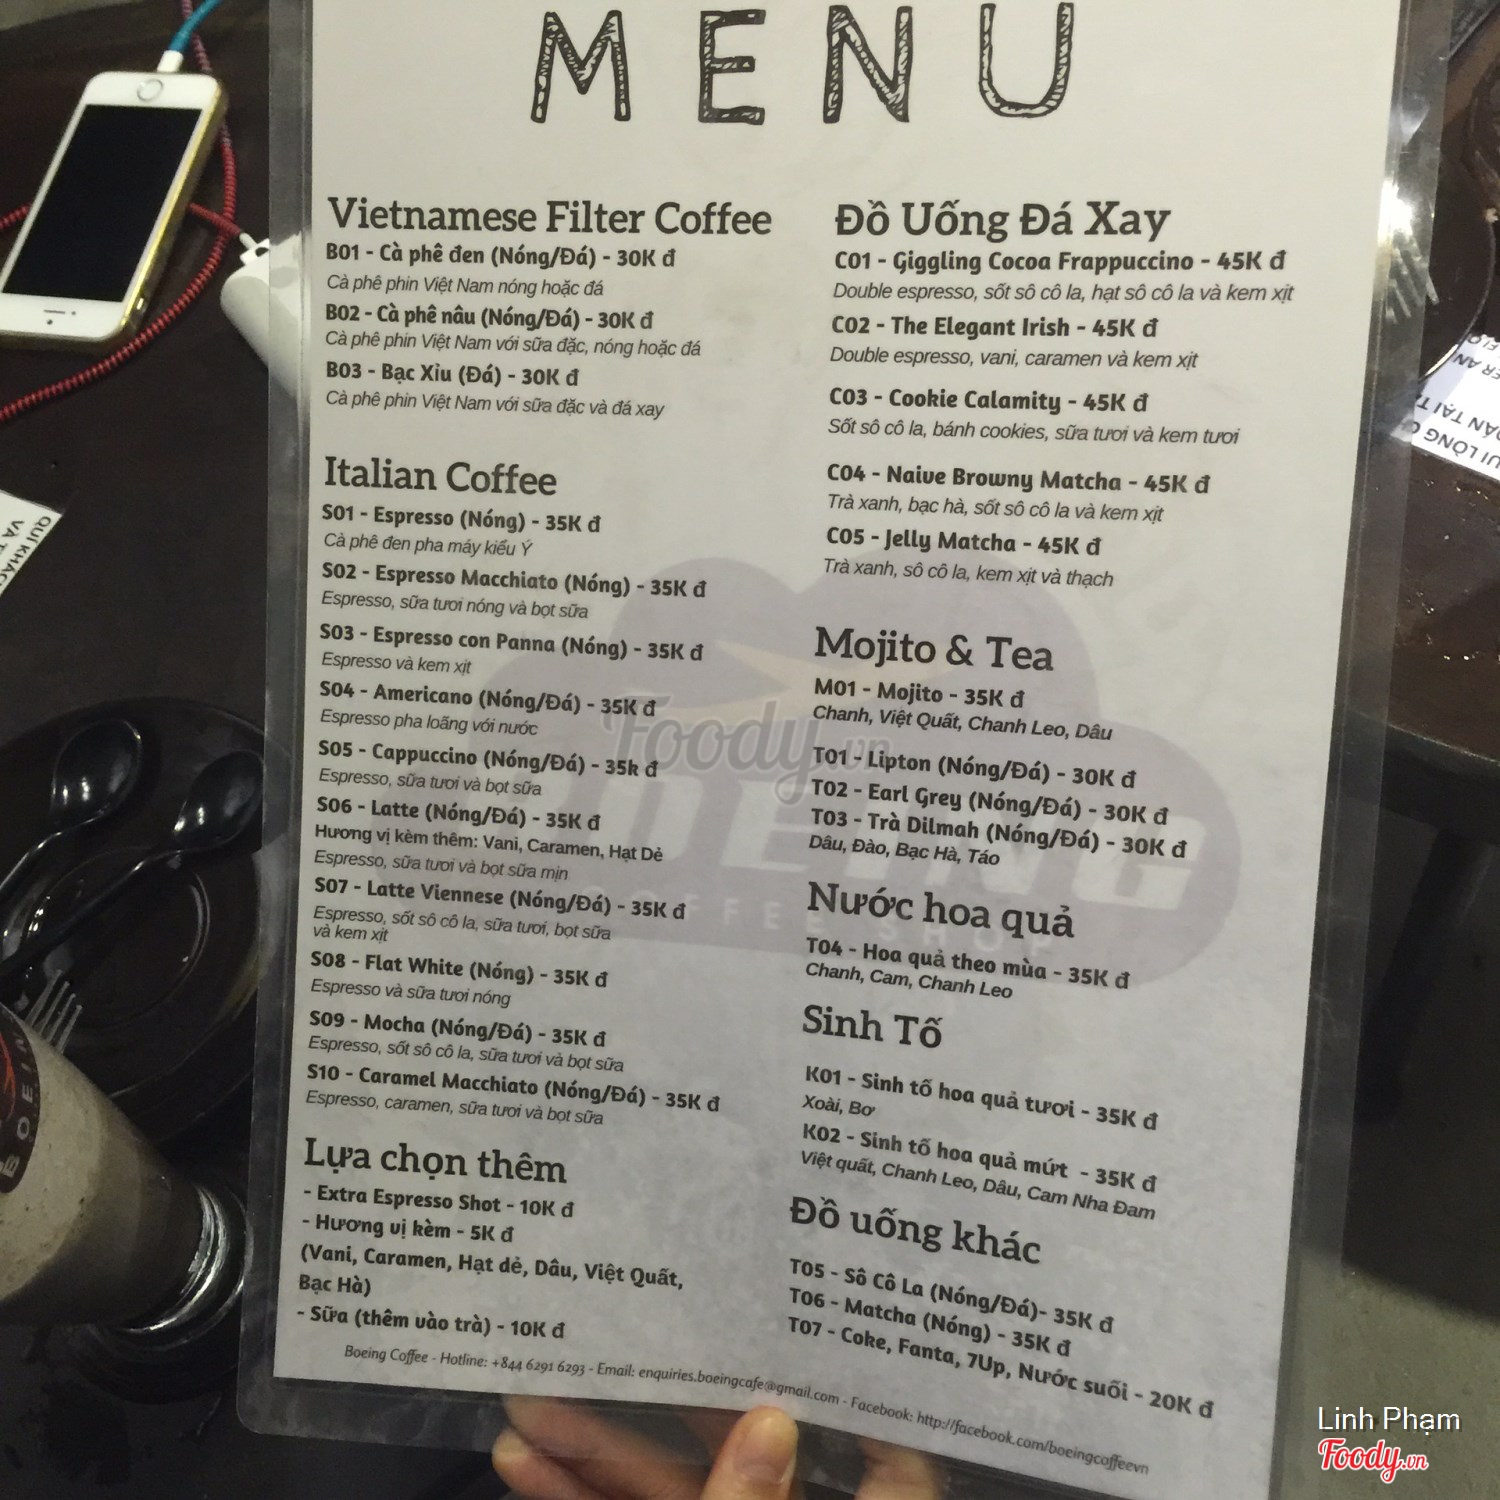 MENU
Vietnamese Filter Coffee
B01 - Cà phê đen (Nóng/Đá) - 30K đ
Cà phê phin Việt Nam nóng hoặc đá
B02 - Cà phê nâu (Nóng/Đá) - 30K đ
Cà phê phin Việt Nam với sữa đặc, nóng hoặc đá
B03 - Bạc Xỉu (Đá) - 30K đ
Cà phê phin Việt Nam với sữa đặc và đá xay
Italian Coffee
S01 - Espresso (Nóng) - 35K đ
Cà phê đen pha máy kiểu Ý
S02 - Espresso Macchiato (Nóng) - 35K đ
Espresso, sữa tươi nóng và bọt sữa
S03 - Espresso con Panna (Nóng) - 35K đ
Espresso và kem xịt
S04 - Americano (Nóng/Đá) - 35K đ
Espresso pha loãng với nước
S05 - Cappuccino (Nóng/Đá) - 35k đ
Espresso, sữa tươi và bọt sữa
S06 - Latte (Nóng/Đá) - 35K đ
Hương vị kèm thêm: Vani, Caramen, Hạt Dẻ
Espresso, sữa tươi và bọt sữa mịn
S07 - Latte Viennese (Nóng/Đá) - 35K đ
Espresso, sốt sô cô la, sữa tươi, bọt sữa
và kem xịt
S08 - Flat White (Nóng) - 35K đ
Espresso và sữa tươi nóng
S09 - Mocha (Nóng/Đá) - 35K đ
Espresso, sốt sô cô la, sữa tươi và bọt sữa
S10 - Caramel Macchiato (Nóng/Đá) - 35K đ
Espresso, caramen, sữa tươi và bọt sữa
Lựa chọn thêm
- Extra Espresso Shot - 10K đ
- Hương vị kèm - 5K đ
(Vani, Caramen, Hạt dẻ, Dâu, Việt Quất,
Bạc Hà)
- Sữa (thêm vào trà) - 10K đ
Đồ Uống Đá Xay
C01 - Giggling Cocoa Frappuccino - 45K đ
Double espresso, sốt sô cô la, hạt sô cô la và kem xịt
C02 - The Elegant Irish - 45K đ
Double espresso, vani, caramen và kem xịt
C03 - Cookie Calamity - 45K đ
Sốt sô cô la, bánh cookies, sữa tươi và kem tươi
C04 - Naive Browny Matcha - 45K đ
Trà xanh, bạc hà, sốt sô cô la và kem xịt
C05 - Jelly Matcha - 45K đ
Trà xanh, sô cô la, kem xịt và thạch
Mojito & Tea
M01 - Mojito - 35K đ
Chanh, Việt Quất, Chanh Leo, Dâu
T01 - Lipton (Nóng/Đá) - 30K đ
T02 - Earl Grey (Nóng/Đá) - 30K đ
T03 - Trà Dilmah (Nóng/Đá) - 30K đ
Dâu, Đào, Bạc Hà, Táo
Nước hoa quả
T04 - Hoa quả theo mùa - 35K đ
Chanh, Cam, Chanh Leo
Sinh Tố
K01 - Sinh tố hoa quả tươi - 35K đ
Xoài, Bơ
K02 - Sinh tố hoa quả mứt - 35K đ
Việt quất, Chanh Leo, Dâu, Cam Nha Đam
Đồ uống khác
T05 - Sô Cô La (Nóng/Đá)- 35K đ
T06 - Matcha (Nóng) - 35K đ
T07 - Coke, Fanta, 7Up, Nước suối - 20K đ
Boeing Coffee - Hotline: +844 6291 6293 - Email: enquiries.boeingcafe@gmail.com - Facebook: http://facebook.com/boeingcoffeevn
Foody.vn
COFFEE SHOP
QUÍ KHÁCH
Linh Phạm
Foody.vn